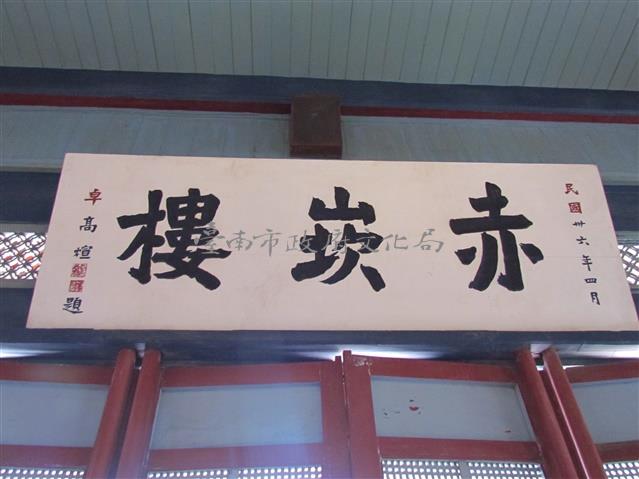 民國卅六年四月
赤崁樓
卓高煊題
臺南市政府文化局